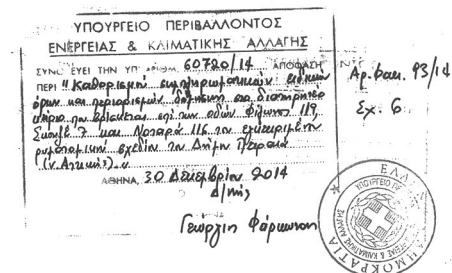 ΥΠΟΥΡΓΕΙΟ ΠΕΡΙΒΑΛΛΟΝΤΟΣ
ΕΝΕΡΓΕΙΑΣ & ΚΛΙΜΑΤΙΚΗΣ ΑΛΛΑΓΗΣ
ΣΥΝΟΔΕΥΕΙ ΤΗΝ ΥΠ' ΑΡΙΘΜ. 60720/14 ΑΠΟΦΑΣΗ
ΠΕΡΙ "Καθορισμού συμπληρωματικών ειδικών
όρων και περιορισμών δόμησης στο διατηρητέο
κτίριο που βρίσκεται επί των οδών Φίλωνος 119,
7 και Νοταρά 116 του εγκεκριμένου
ρυμοτομικού σχεδίου του Δήμου Πειραιά
(ν. Αττικής).»
ΑΘΗΝΑ, 30 Δεκεμβρίου 2014
Γεωργίη
Αρ. φακ. 93/14
Σχ. 6
ΕΛΛ ΗΜΟΚΡΑΤΙΑ
ΥΠΟΥΡΓΕΙΟ ΚΛΙΜΑΤΙΚΗΣ ΑΛΛΑΓΗΣ